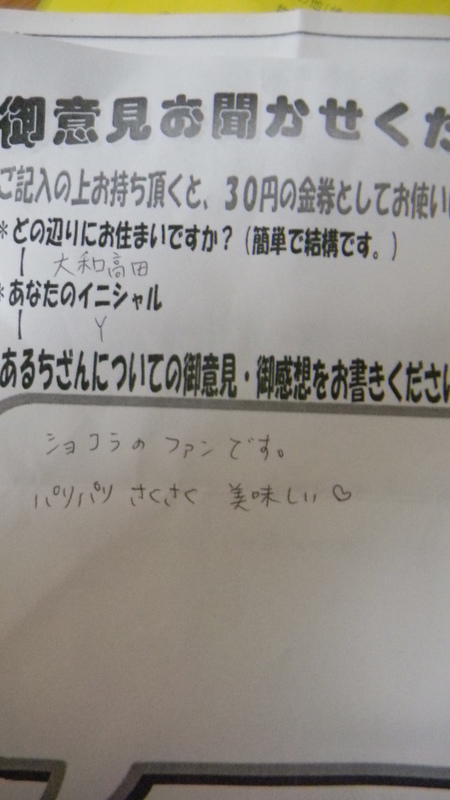 御意見お聞かせくだ
ご記入の上お持ち頂くと、30円の金券としてお使い
*どの辺りにお住まいですか？(簡単で結構です。)
大和高田
*あなたのイニシャル
Y
あるちざんについての御意見・御感想をお書きください
ショコラのファンです。
パリパリ さくさく 美味しい♡